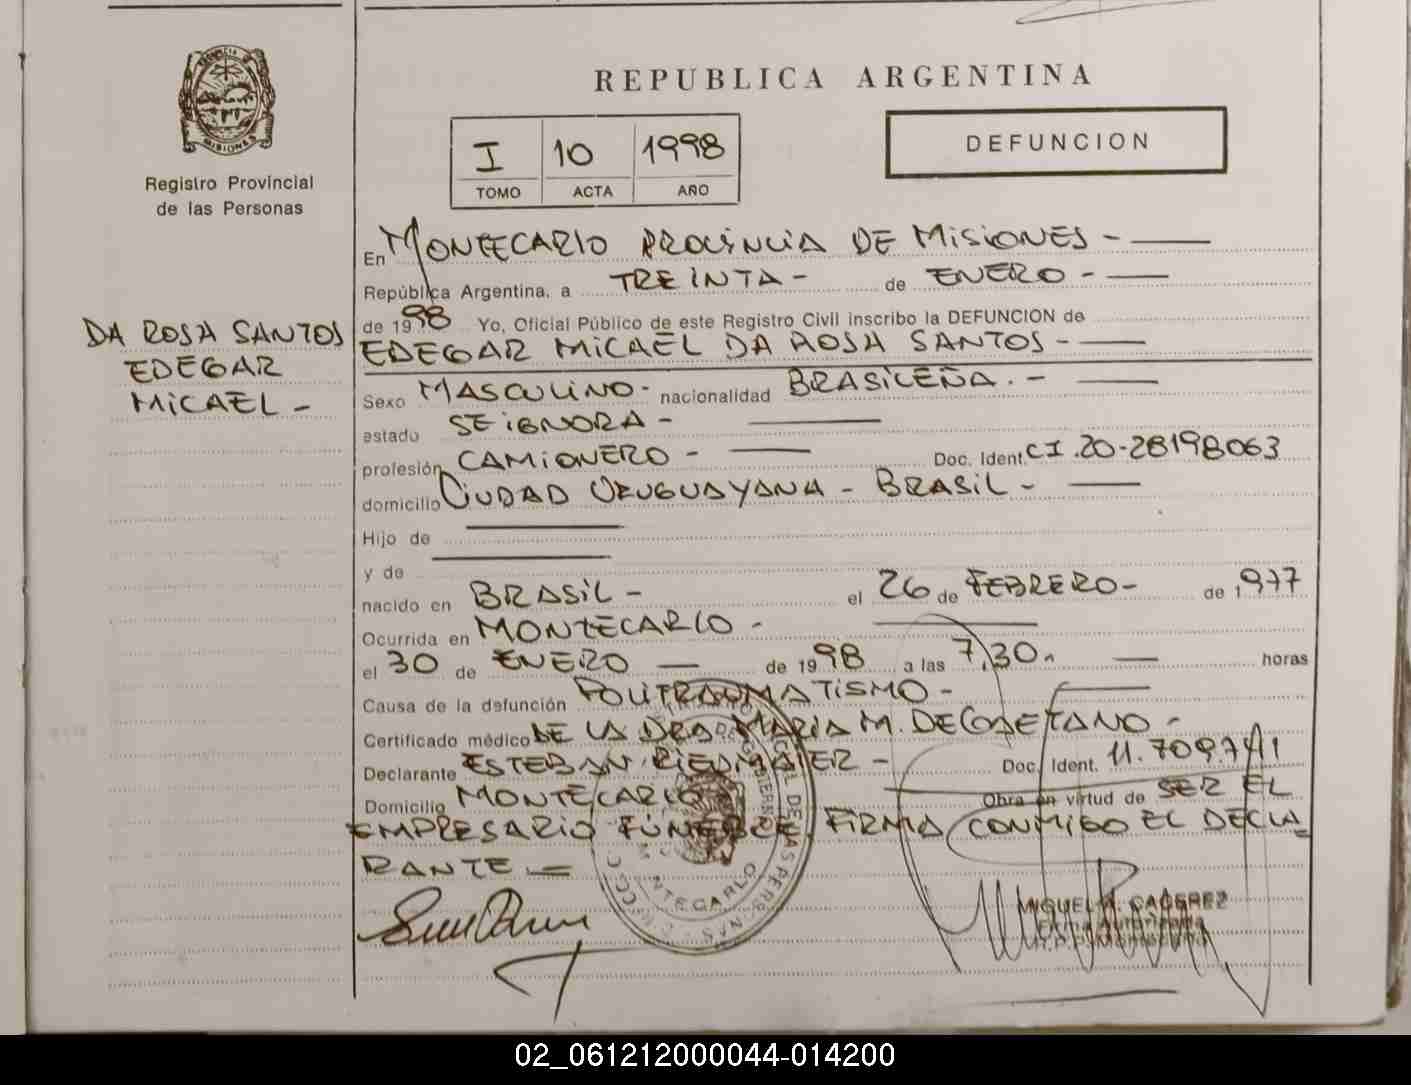 REPUBLICA ARGENTINA
PROVINCIA DE
MISIONES
Registro Provincial
de las Personas
I 10 1998
TOMO ACTA AÑO
DEFUNCION
DA ROSA SANTOS
EDEGAR
MICAEL -
En MONTECARLO PROVINCIA DE MISIONES -
República Argentina, a TREINTA - de ENERO -
de 1998 Yo, Oficial Público de este Registro Civil inscribo la DEFUNCION de
EDEGAR MICAEL DA ROSA SANTOS -
Sexo MASCULINO - nacionalidad BRASILEÑA. -
estado SE IGNORA -
profesión CAMIONERO - Doc. Ident. CI.20-28198063
domicilio CIUDAD URUGUAYANA - BRASIL -
Hijo de
y de
nacido en BRASIL - el 26 de FEBRERO - de 1977
Ocurrida en MONTECARLO -
el 30 de ENERO - de 1998 a las 7,30 - horas
Causa de la defunción POLITRAUMATISMO -
Certificado médico DE LA DRA MARIA M. DE GAETANO -
Declarante ESTEBAN RIEDMAIER - Doc. Ident. 11.709.741
Domicilio MONTECARLO Obra en virtud de SER EL
EMPRESARIO FÚNEBRE. FIRMA CONMIGO EL DECLA
RANTE. -
MONTECARLO
MIGUEL A. CACEREZ
02_061212000044-014200